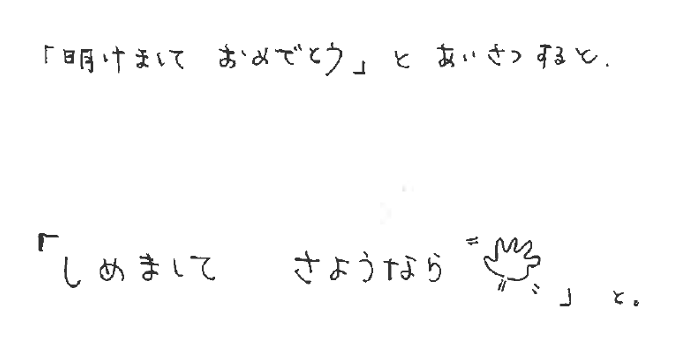 「明けまして おめでとう」と あいさつすると.
「しめまして さようなら 」と。